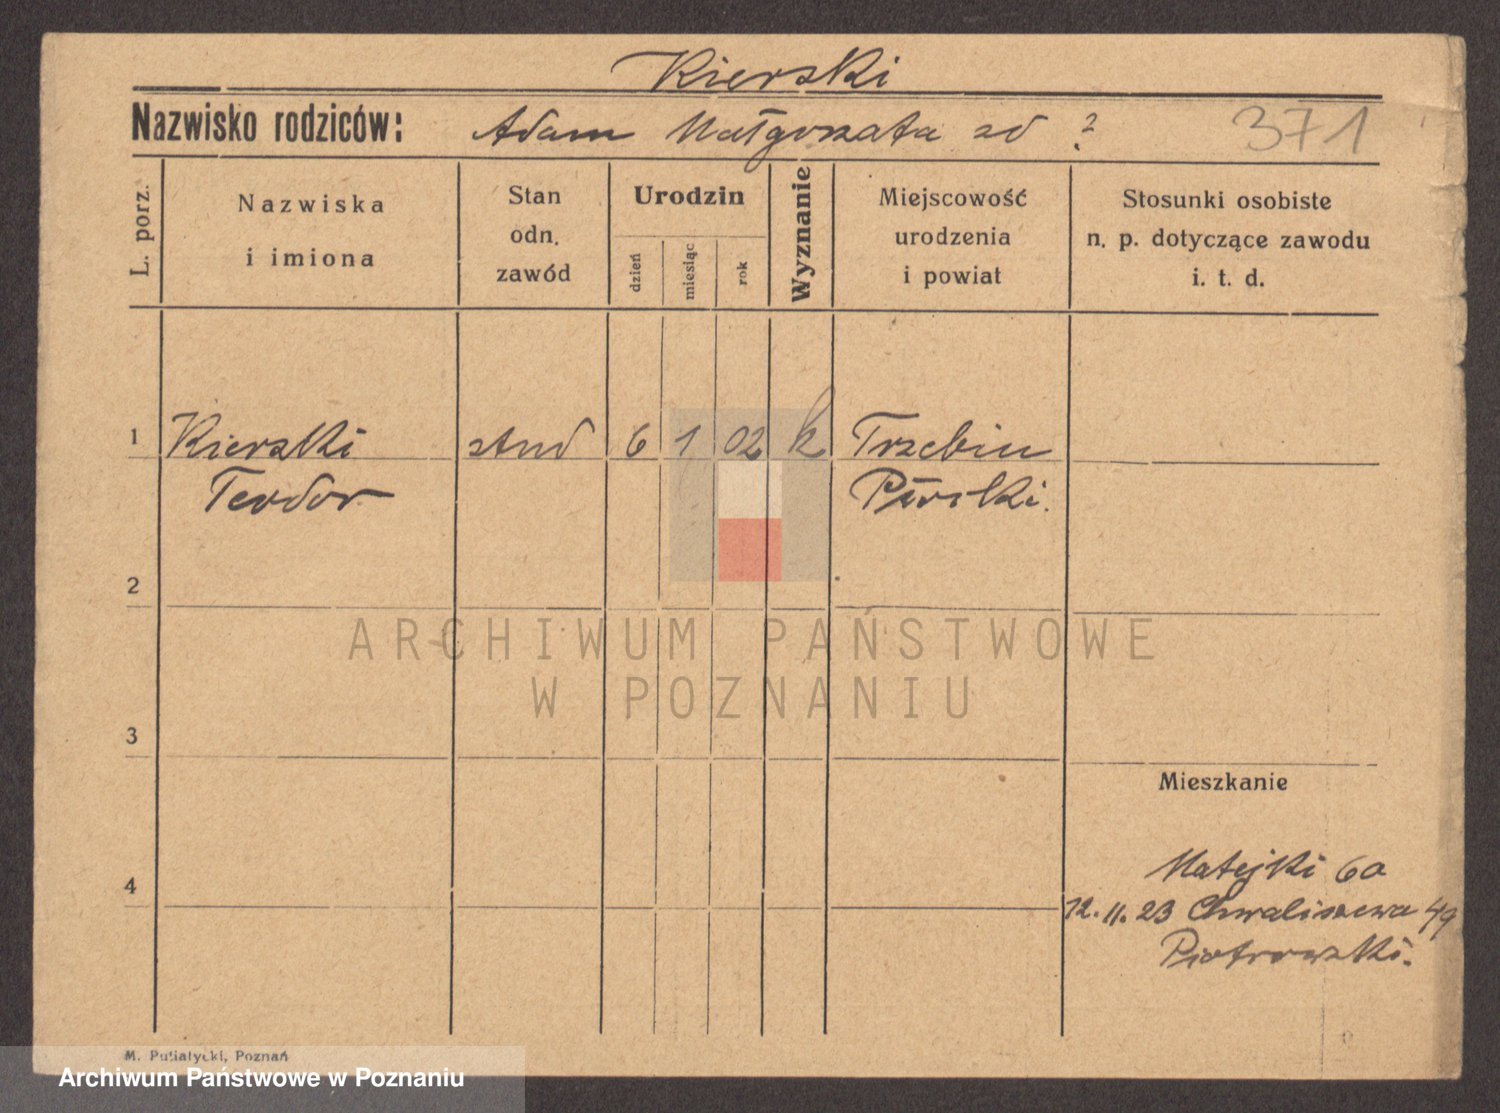 Kierski
Nazwisko rodziców: Adam Małgorzata zd ? 371
L. porz.
Nazwiska
i imiona
Stan
odn.
zawód
Urodzin
dzień
miesiąc
rok
Wyznanie
Miejscowość
urodzenia
i powiat
Stosunki osobiste
n. p. dotyczące zawodu
i. t. d.
1 Kierski stud 6 1 02 k Trzebin
Teodor
2
ARCHIWUM PAŃSTWOWE
W POZNANIU
3
Mieszkanie
4
Matejki 60
12.11.23 Chwaliszewa 49
Piotrowski.
M. Putiatycki, Poznań
Archiwum Państwowe w Poznaniu